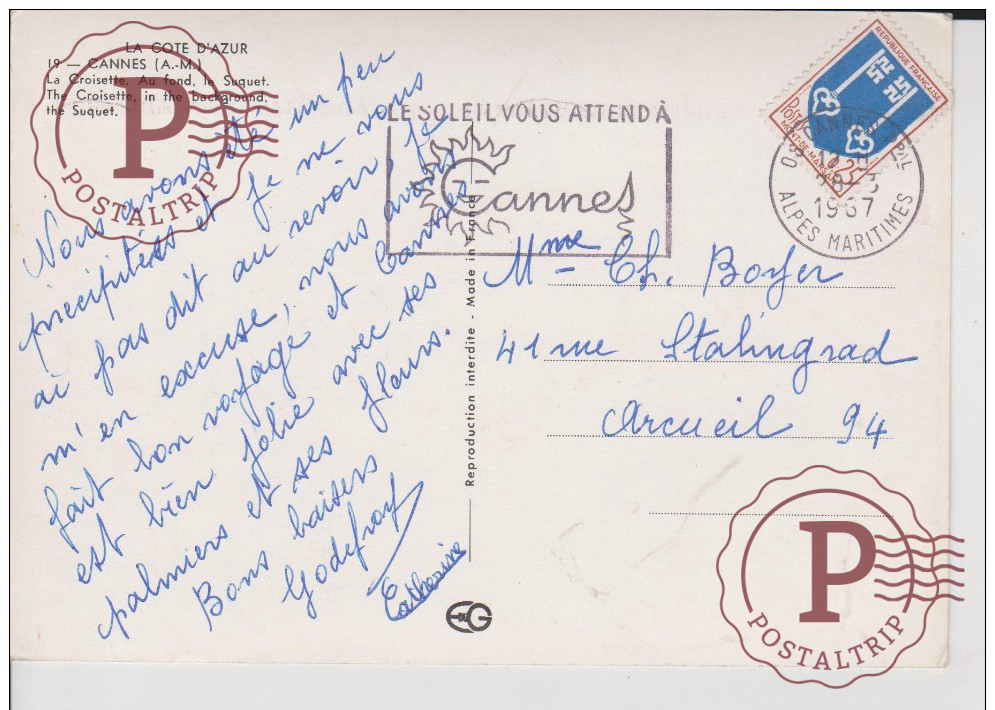 LA COTE D'AZUR
19 — CANNES (A.-M.)
La Croisette. Au fond, le Suquet.
The Croisette, in the background,
the Suquet.
Nous avons été un peu
précipitées et je ne vous
ai pas dit au revoir, je
m'en excuse, nous avons
fait bon voyage et Cannes
est bien jolie avec ses
palmiers et ses fleurs.
Bons baisers
Godefroy
Catherine
Reproduction interdite - Made in France
EG
LE SOLEIL VOUS ATTEND À
Cannes
REPUBLIQUE FRANÇAISE
MONT-DE-MARSAN
0,25
CANNES PPAL
1967
ALPES MARITIMES
Mme Ch. Boyer
41 rue Stalingrad
Arcueil 94
P
POSTALTRIP
P
POSTALTRIP